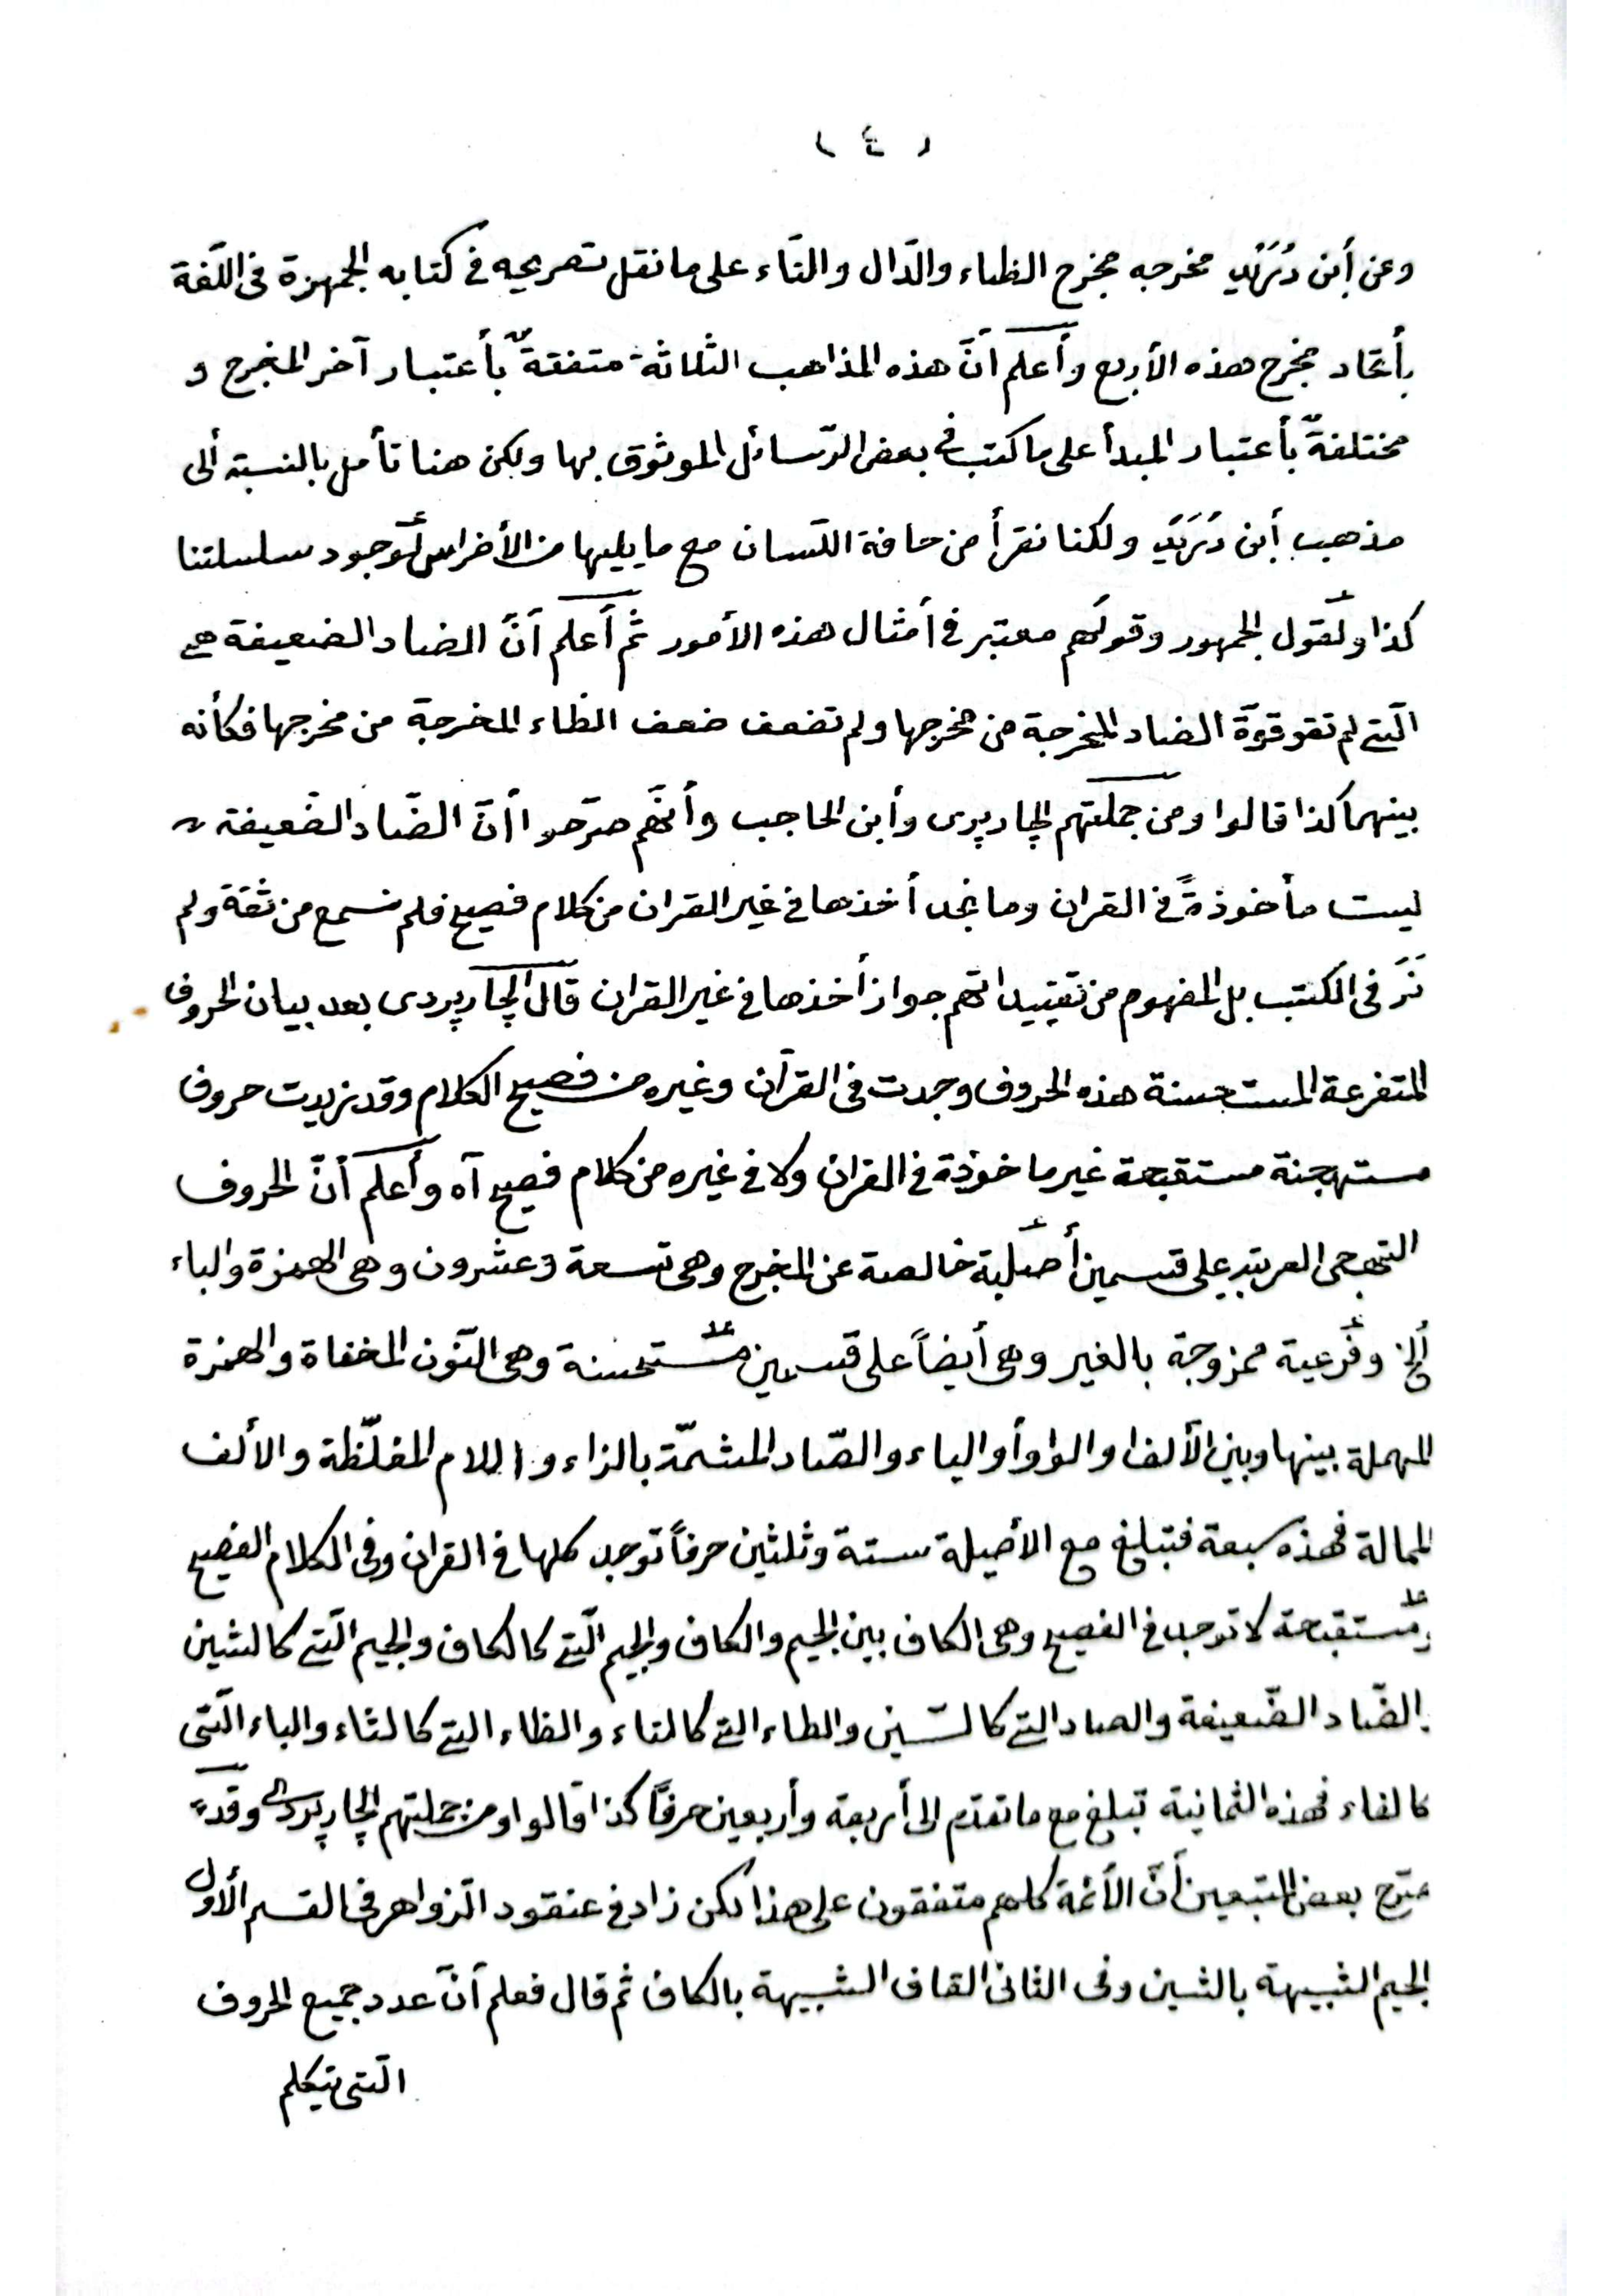 ( ٤ )
وعن أبن دُرَيْدٍ مخرجه مخرج الظاء والدّال والتّاء على ما نقل تصريحه في كتابه الجمهرة في اللّغة
بأتحاد مخرج هذه الأربع وأعلم أنّ هذه المذاهب الثلاثة متفقةٌ بأعتبار آخر المخرج و
مختلفةٌ بأعتبار المبدأ على ما كتب في بعض الرّسائل الموثوق بها ولكن هنا تأمل بالنسبة ألى
مذهب أبن دُرَيَدٍ ولكنا نقرأ من حافة اللّسان مع ما يليها من الأضراس لوجود سلسلتنا
كذا ولقول الجمهور وقولهم معتبر في أمثال هذه الأمور ثم أعلم أنّ الضاد الضعيفة هي
الّتي لم تقو قوّة الضاد المخرجة من مخرجها ولم تضعف ضعف الظاء المخرجة من مخرجها فكأنه
بينهما كذا قالوا ومن جملتهم الچارپردى وأبن الحاجب وأنّهم صرّحوا أنّ الضّاد الضّعيفة
ليست مأخوذةً في القران وما نجد أخذها في غير القران من كلام فصيح فلم نسمع من ثقة ولم
نَرَ في الكتب بل المفهوم من تقييداتهم جواز أخذها في غير القران قال الچارپردى بعد بيان الحروف
المتفرعة المستحسنة هذه الحروف وجدت في القرآن وغيره من فصيح الكلام وقد زيدت حروف
مستهجنة مستقبحة غير ماخوذة في القران ولا في غيره من كلام فصيح آه وأعلم أنّ الحروف
التهجى العربية على قسمين أصلية خالصة عن المخرج وهى تسعة وعشرون وهى الهمزة والباء
ألخ وفرعية ممزوجة بالغير وهى أيضاً على قسمين مستحسنة وهى النّون المخفاة والهمزة
المسهلة بينها وبين الألف او الواو أو الياء والصّاد المشمّة بالزاء واللام المغلّظة والألف
الممالة فهذه سبعة فتبلغ مع الأصيلة ستة وثلثين حرفاً توجد كلها في القران وفى الكلام الفصيح
ومستقبحة لا توجد في الفصيح وهى الكاف بين الجيم والكاف والجيم الّتي كالكاف والجيم الّتي كالشين
والضّاد الضّعيفة والصاد التي كالسّين والطاء التي كالتاء والظاء التي كالثاء والباء الّتى
كالفاء فهذه الثمانية تبلغ مع ما تقدّم الى أربعة وأربعين حرفاً كذا قالوا ومن جملتهم الچارپردى وقد
صرّح بعض المتبعين أنّ الأئمة كلهم متفقون على هذا لكن زاد في عنقود الزواهر في القسم الأوّل
الجيم الشبيهة بالشين وفى الثانى القاف الشبيهة بالكاف ثم قال فعلم أنّ عدد جميع الحروف
الّتى يتكلم